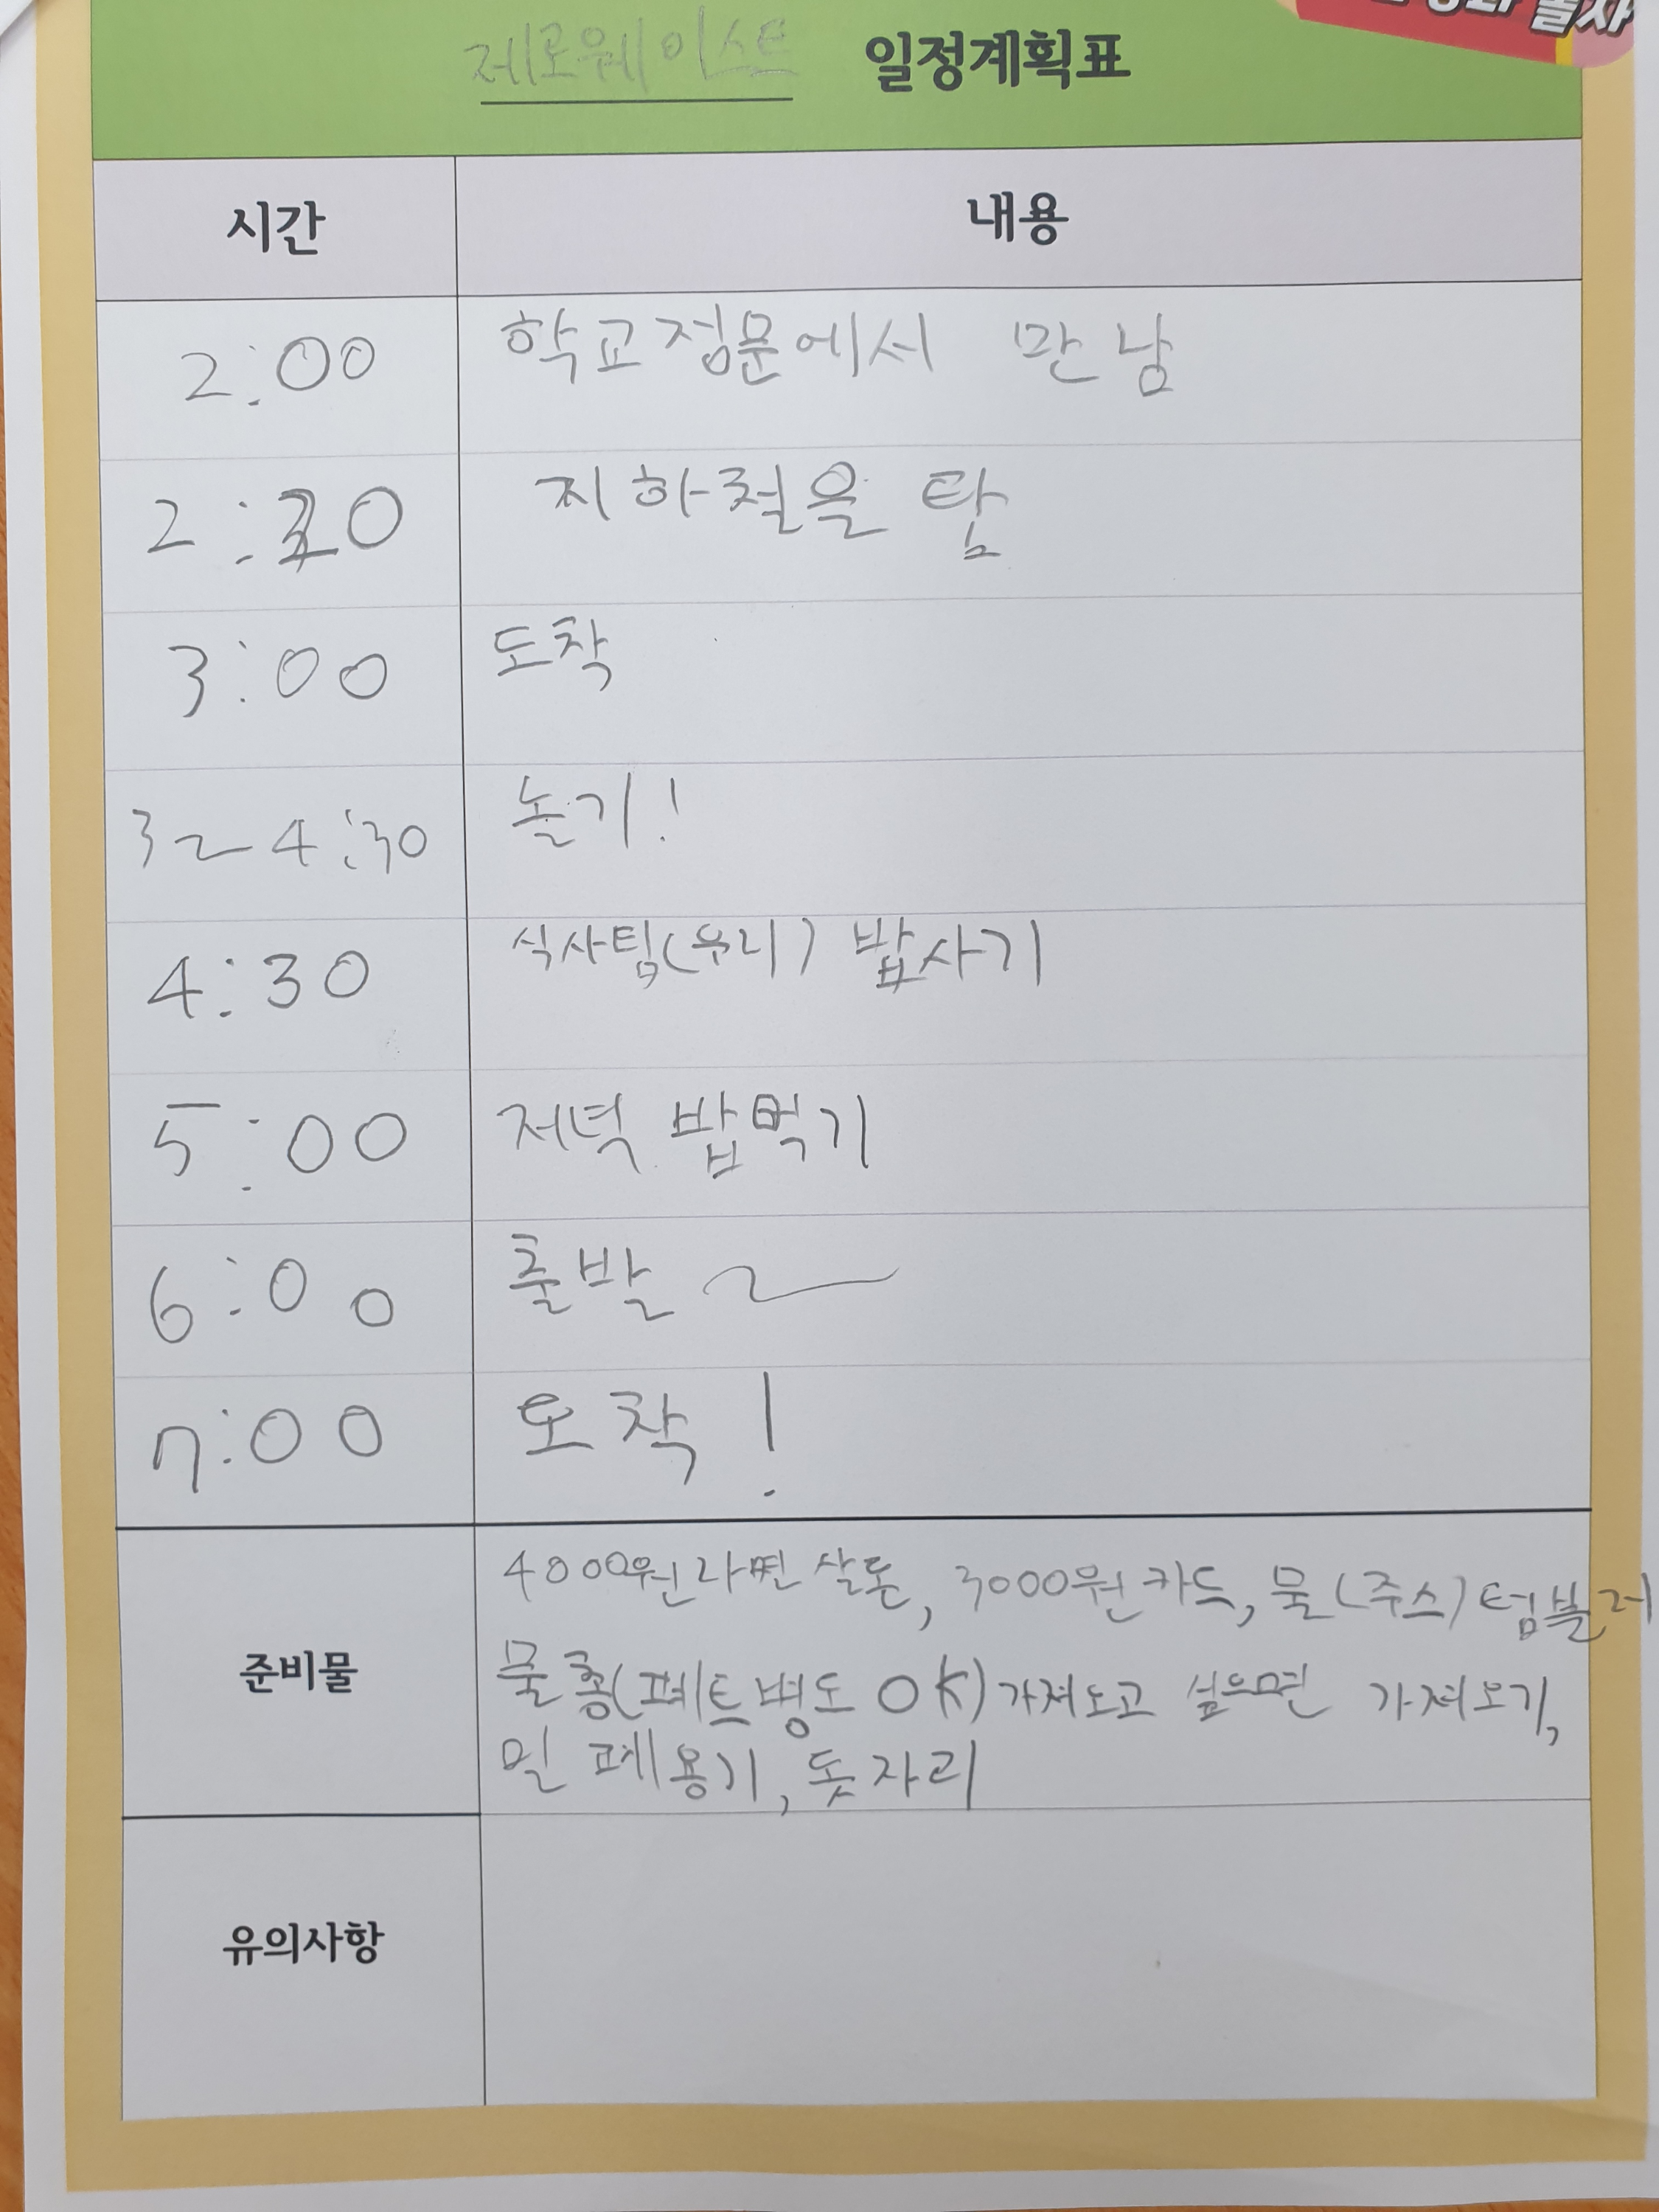 제로웨이스트 일정계획표
시간 내용
2:00 학교정문에서 만남
2:20 지하철을 탐
3:00 도착
3~4:30 놀기!
4:30 식사팀(우리) 밥사기
5:00 저녁 밥먹기
6:00 출발~
7:00 도착!
준비물
4000원라면살돈, 3000원카드, 물(주스)텀블러
물총(페트병도 OK)가져오고 싶으면 가져오기,
밀폐용기, 돗자리
유의사항